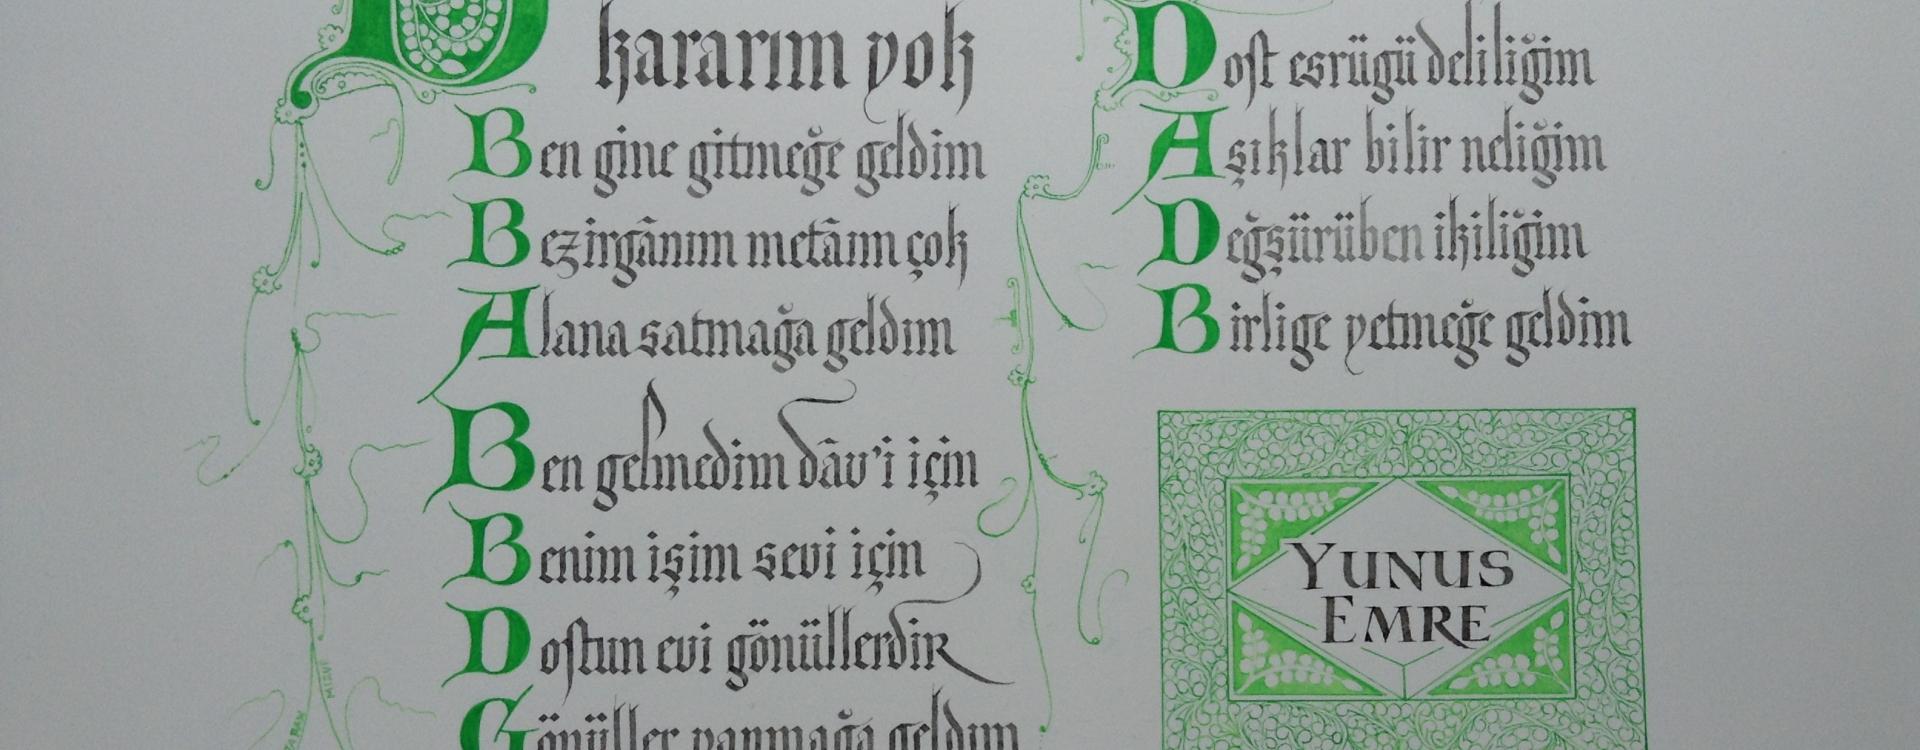 kararım yok
Ben gine gitmeğe geldim
Bezirgânım metâım çok
Alana satmağa geldim
Ben gelmedim dâv'i için
Benim işim sevi için
Dostun evi gönüllerdir
Gönüller yapmağa geldim
Dost esrügü deliliğim
Aşıklar bilir neliğim
Değşürüben ikiliğim
Birlige yetmeğe geldim
YUNUS
EMRE